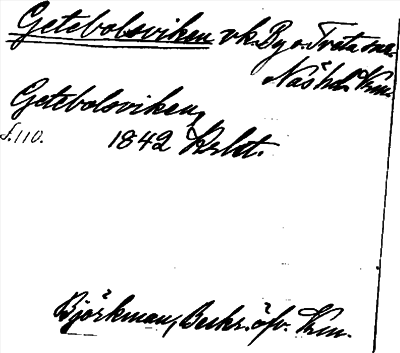 Getebolsviken vk. By o. Treta snr.
Näs hd. Vrm.
Getebolsviken,
s. 110. 1842 Krbt.
Björkman, Beskr. öfv. Vrm.